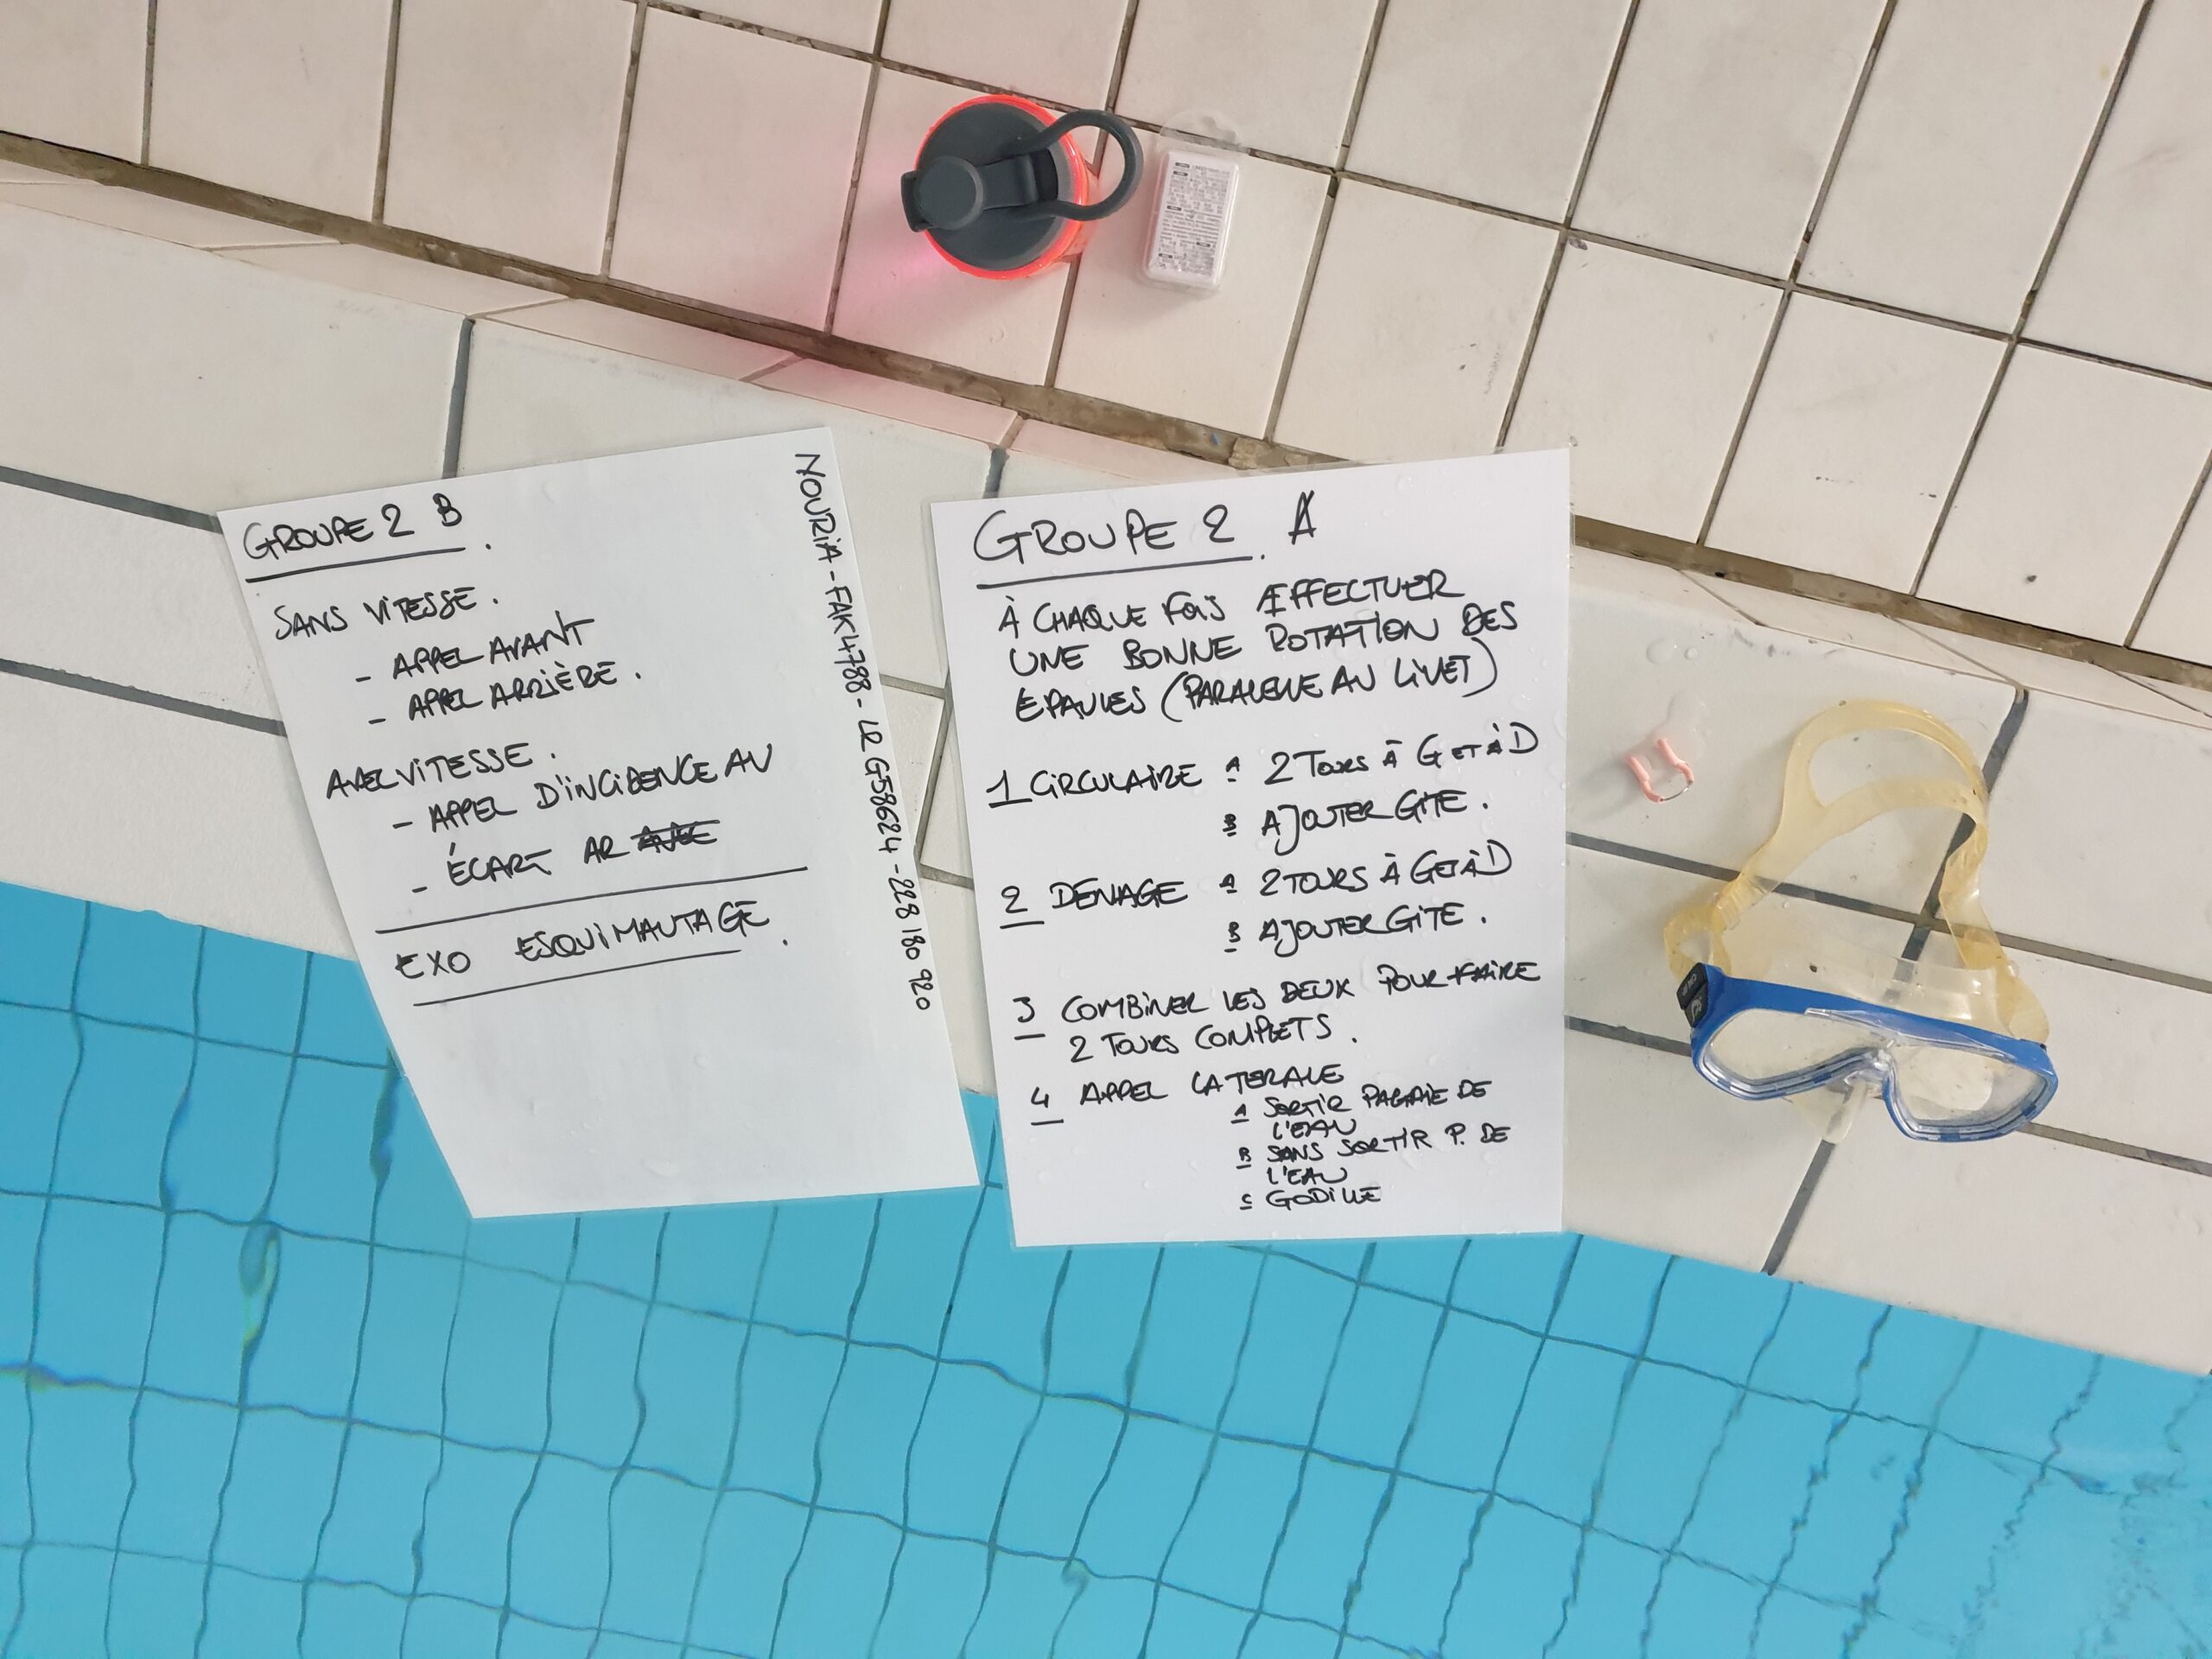 GROUPE 2 B.
SANS VITESSE.
- APPEL AVANT
- APPEL ARRIÈRE.
AVEC VITESSE.
- APPEL D'INCIDENCE AV
- ÉCART AR
EXO ESQUIMAUTAGE.
NOURIA - FAK4788 - LR G58624 - 228 180 920
GROUPE 2. A
À CHAQUE FOIS EFFECTUER
UNE BONNE ROTATION DES
EPAULES (PARALELLE AU LIVET)
1 CIRCULAIRE A 2 TOURS À G ET À D
B AJOUTER GITE.
2 DENAGE A 2 TOURS À G ET À D
B AJOUTER GITE.
3 COMBINER LES DEUX POUR FAIRE
2 TOURS COMPLETS.
4 APPEL LATERALE
A SORTIR PAGAIE DE
L'EAU
B SANS SORTIR P. DE
L'EAU
C GODILLE